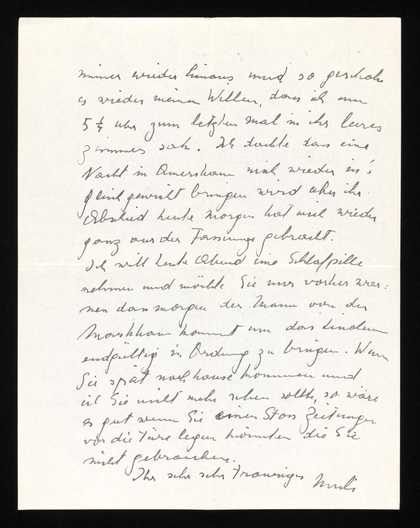 immer wieder hinaus und so geschah
es wieder meinen Willen, dass ich um
5 ½ Uhr zum letzten mal in ihr leeres
Zimmer sah. Ich dachte dass eine
Nacht in mich wieder in's
bringen wird aber ihr
Abschied heute morgen hat mich wieder
ganz aus der Fassung gebracht.
Ich will heute Abend eine Schlafpille
nehmen und möchte Sie nur vorher war:
nen dass morgen der Mann von der
kommt um das Linoleum
endgültig in Ordnung zu bringen. Wenn
Sie spät nachhause kommen und
ich Sie nicht mehr sehen sollte, so wäre
es gut wenn Sie einen Stoss Zeitungen
vor die Türe legen könnten die Sie
nicht gebrauchen.
Ihr sehr sehr trauriges